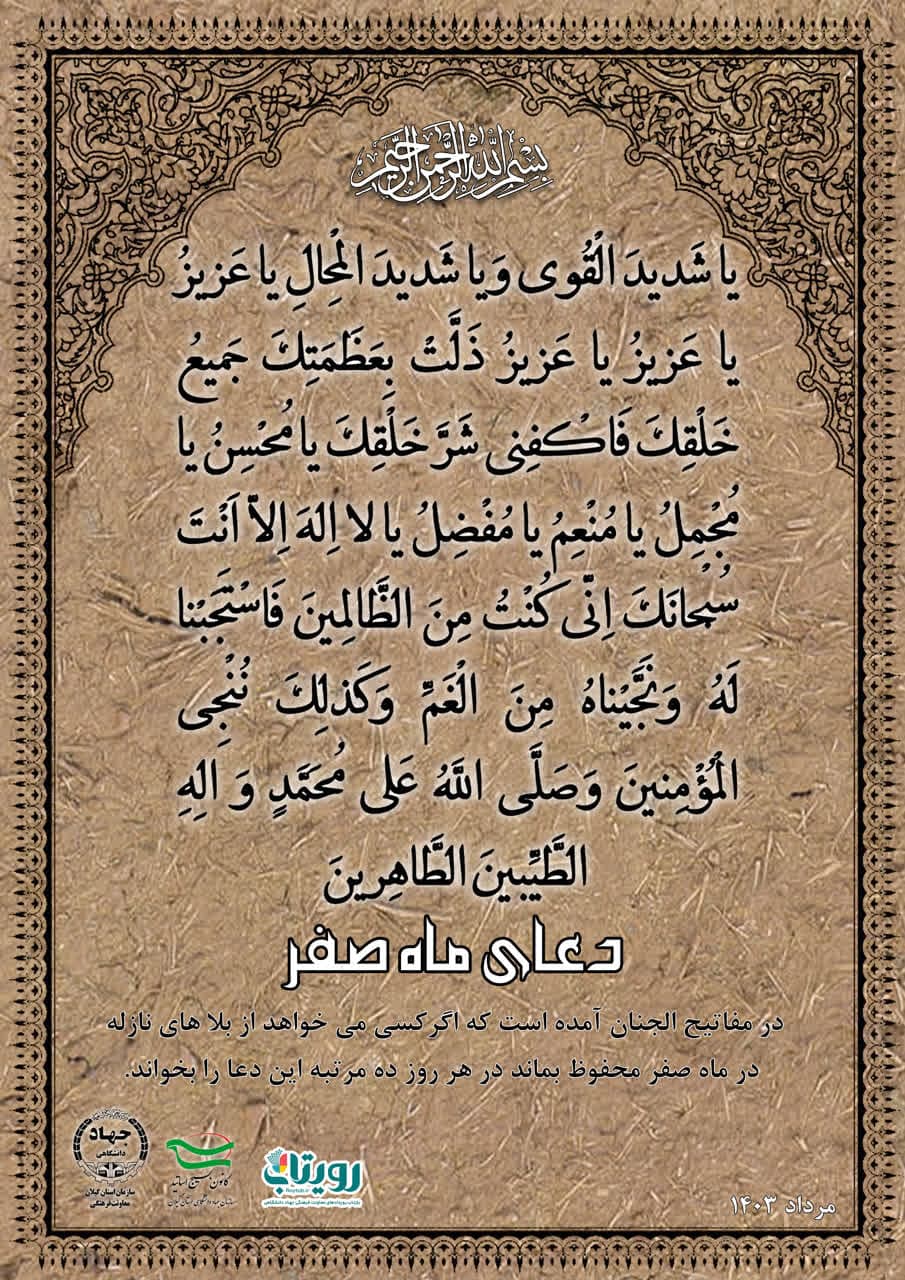 بِسْمِ اللهِ الرَّحْمنِ الرَّحِيمِ
يا شَديدَ الْقُوى وَيا شَديدَ الْمِحالِ يا عَزيزُ
يا عَزيزُ يا عَزيزُ ذَلَّتْ بِعَظَمَتِكَ جَميعُ
خَلْقِكَ فَاكْفِنى شَرَّ خَلْقِكَ يا مُحْسِنُ يا
مُجْمِلُ يا مُنْعِمُ يا مُفْضِلُ يا لا اِلهَ اِلاّ اَنْتَ
سُبْحانَكَ اِنّى كُنْتُ مِنَ الظَّالِمينَ فَاسْتَجَبْنا
لَهُ وَنَجَّيْناهُ مِنَ الْغَمِّ وَكَذلِكَ نُنْجِى
الْمُؤْمِنينَ وَصَلَّى اللَّهُ عَلى مُحَمَّدٍ وَ الِهِ
الطَّيِّبينَ الطَّاهِرينَ
دعای ماه صفر
در مفاتیح الجنان آمده است که اگرکسی می خواهد از بلا های نازله
در ماه صفر محفوظ بماند در هر روز ده مرتبه این دعا را بخواند.
جهاد
دانشگاهی
سازمان استان گیلان
معاونت فرهنگی
کانون بسیج اساتید
سازمان جهاد دانشگاهی استان گیلان
رویتاب
Rooytab.ir
بازتاب رویدادهای معاونت فرهنگی جهاد دانشگاهی
مرداد ۱۴۰۳